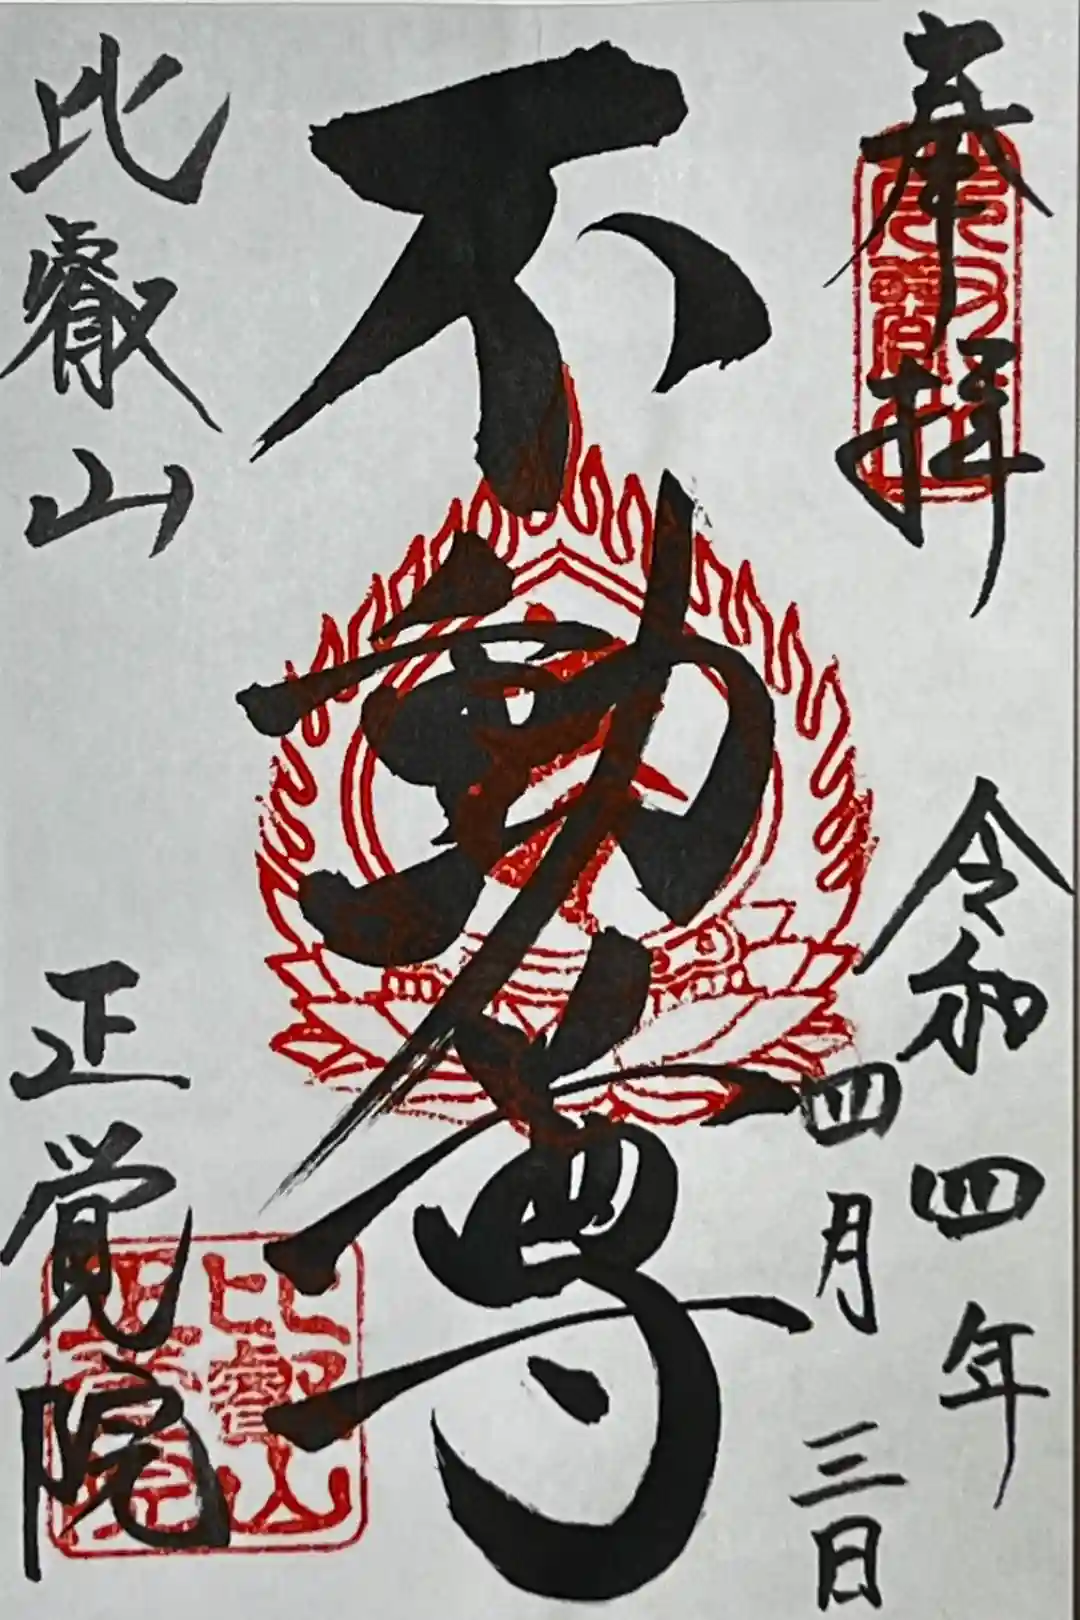 奉拝
令和四年
四月三日
不動尊
比叡山
正覚院
比叡山
正覚院